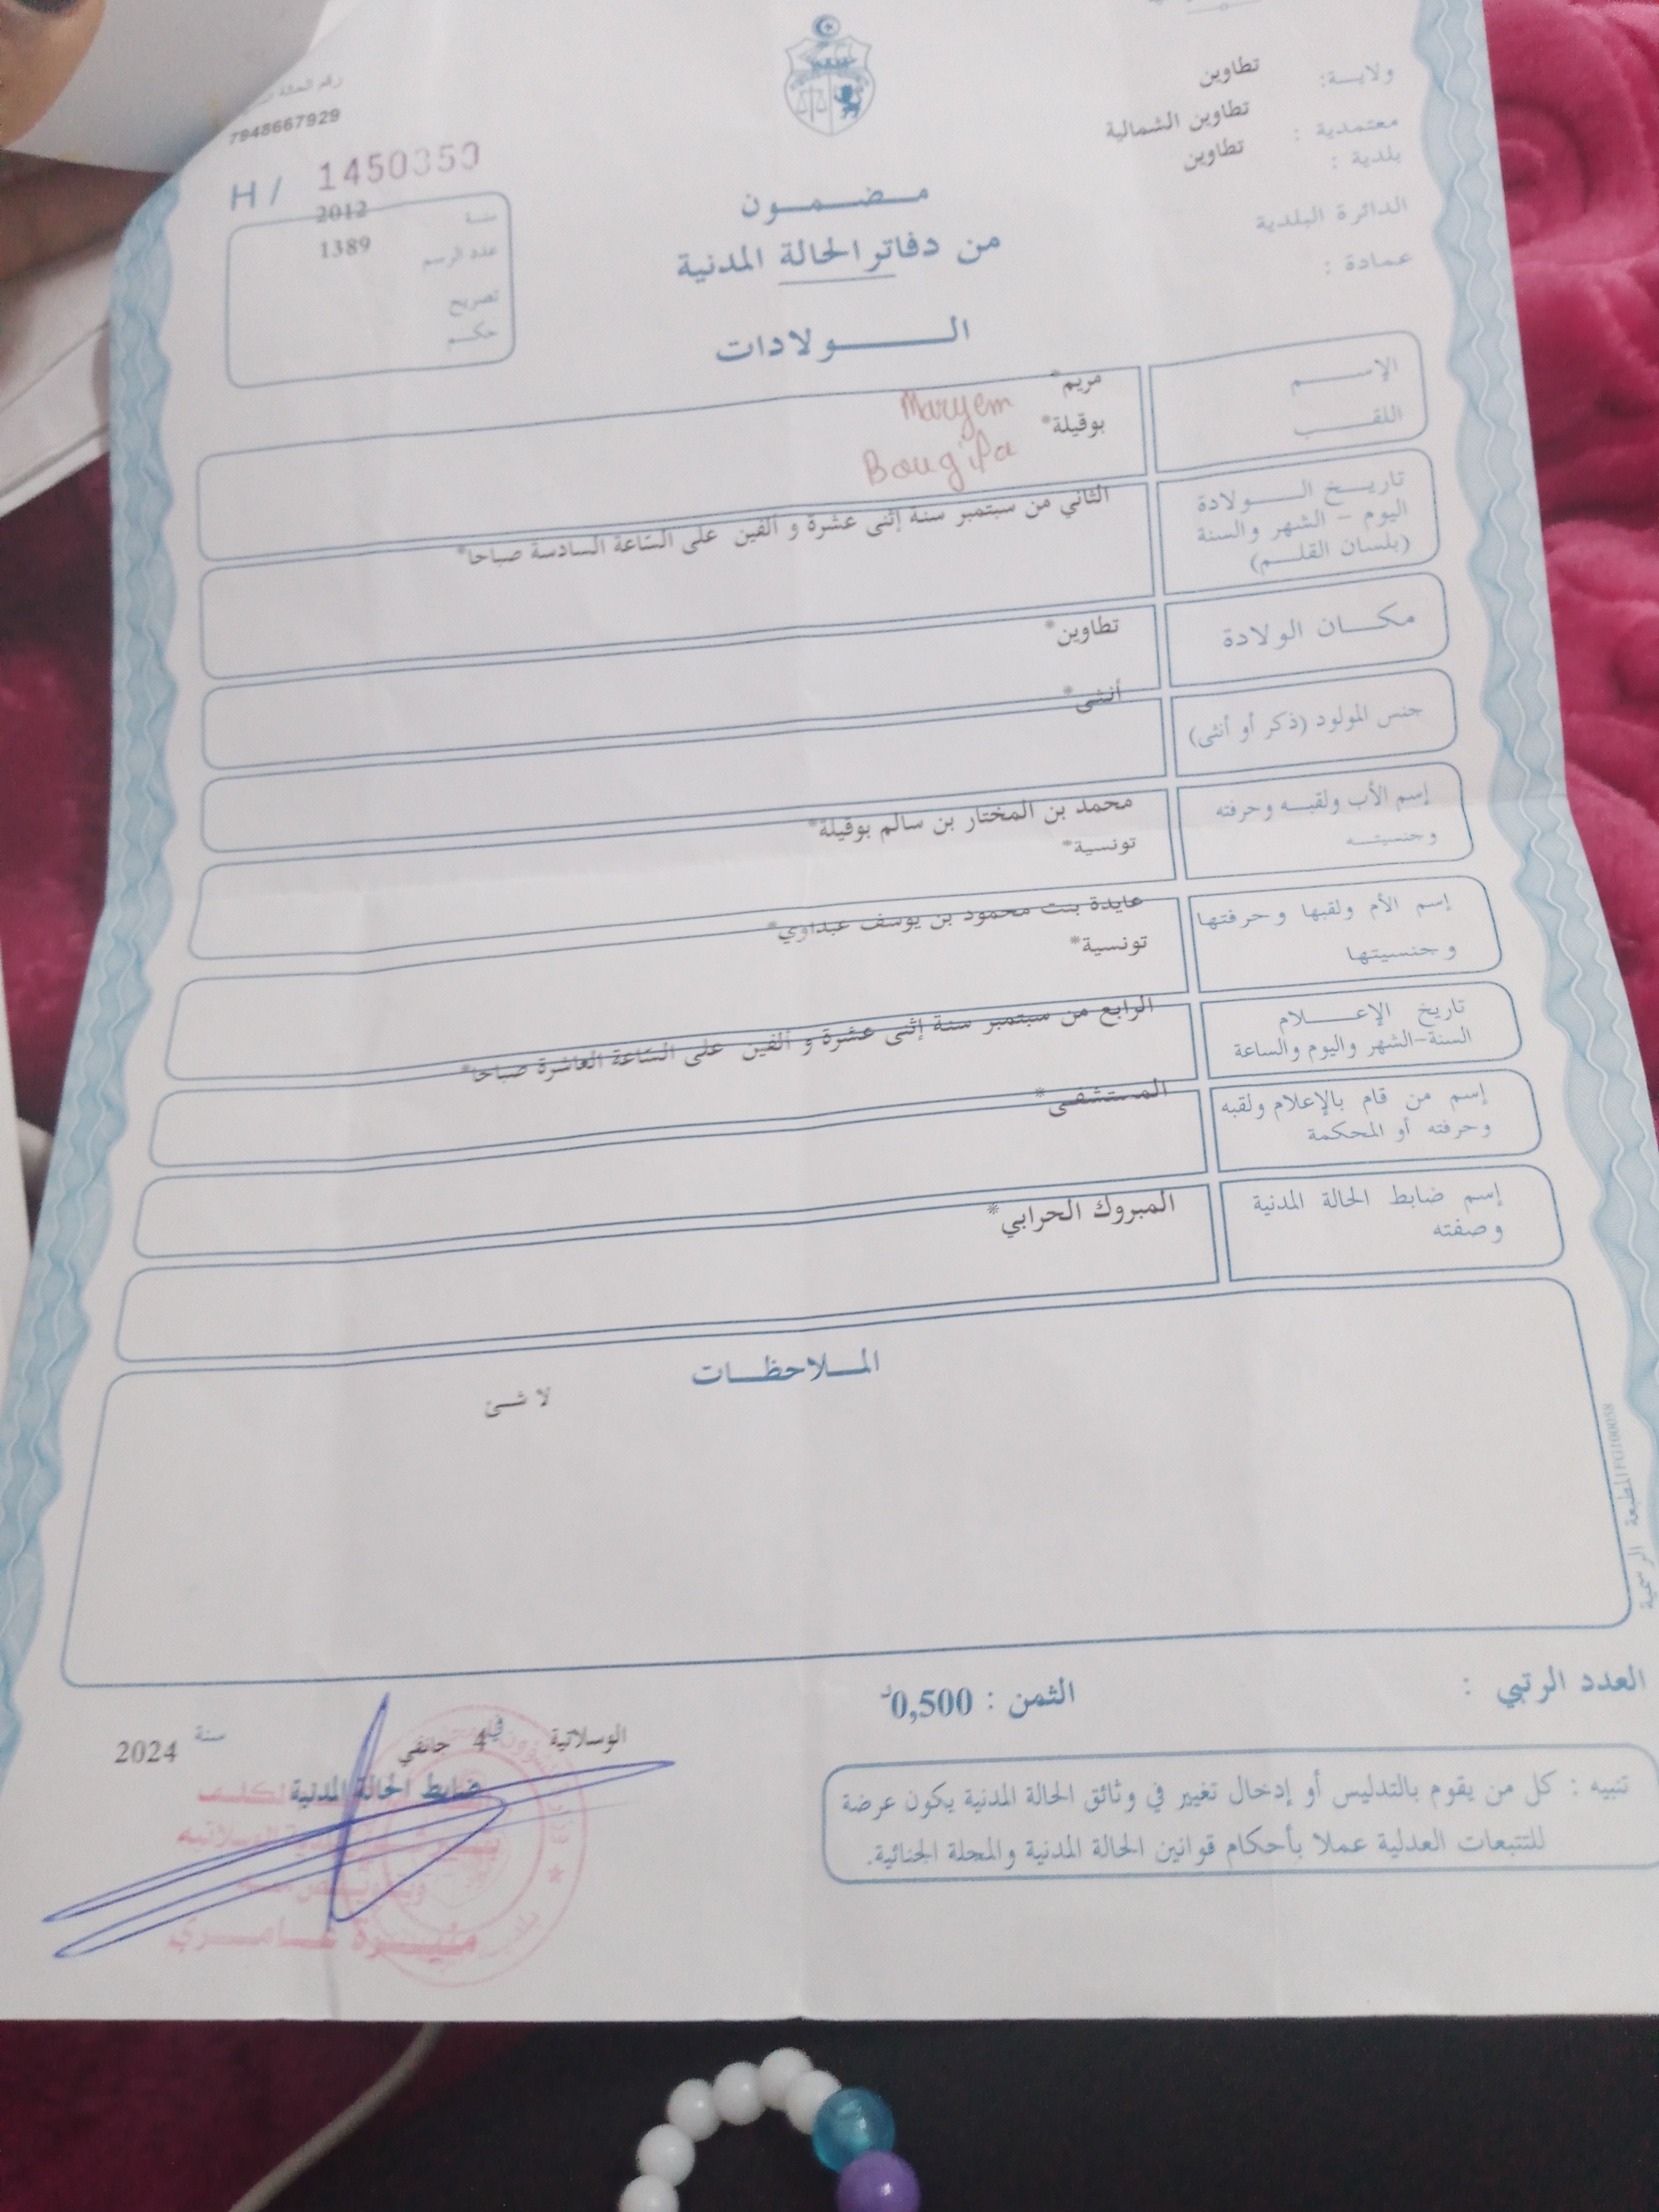 رقم الحالة
7948667929
H / 1450350
سنة 2012
عدد الرسم 1389
تصريح
حكم
ولاية: تطاوين
معتمدية : تطاوين الشمالية
بلدية : تطاوين
الدائرة البلدية
عمادة :
مضمون
من دفاتر الحالة المدنية
الولادات
الإسم مريم*
Maryem
اللقب بوقيلة*
Bougila
تاريخ الولادة
اليوم - الشهر والسنة
(بلسان القلم)
الثاني من سبتمبر سنة إثنى عشرة و ألفين على الساعة السادسة صباحا*
مكان الولادة تطاوين*
جنس المولود (ذكر أو أنثى) أنثى*
إسم الأب ولقبه وحرفته محمد بن المختار بن سالم بوقيلة*
وجنسيته تونسية*
إسم الأم ولقبها وحرفتها عايدة بنت محمود بن يوسف عبداوي*
وجنسيتها تونسية*
تاريخ الإعلام
السنة-الشهر واليوم والساعة
الرابع من سبتمبر سنة إثنى عشرة و ألفين على الساعة العاشرة صباحا*
إسم من قام بالإعلام ولقبه المستشفى*
وحرفته أو المحكمة
إسم ضابط الحالة المدنية المبروك الحرابي*
وصفته
الملاحظات
لا شئ
المطبعة الرسمية
العدد الرتبي :
الثمن : 0,500د
الوسلاتية في 4 جانفي سنة 2024
ضابط الحالة المدنية
منيرة عامري
تنبيه : كل من يقوم بالتدليس أو إدخال تغيير في وثائق الحالة المدنية يكون عرضة
للتتبعات العدلية عملا بأحكام قوانين الحالة المدنية والمجلة الجنائية.